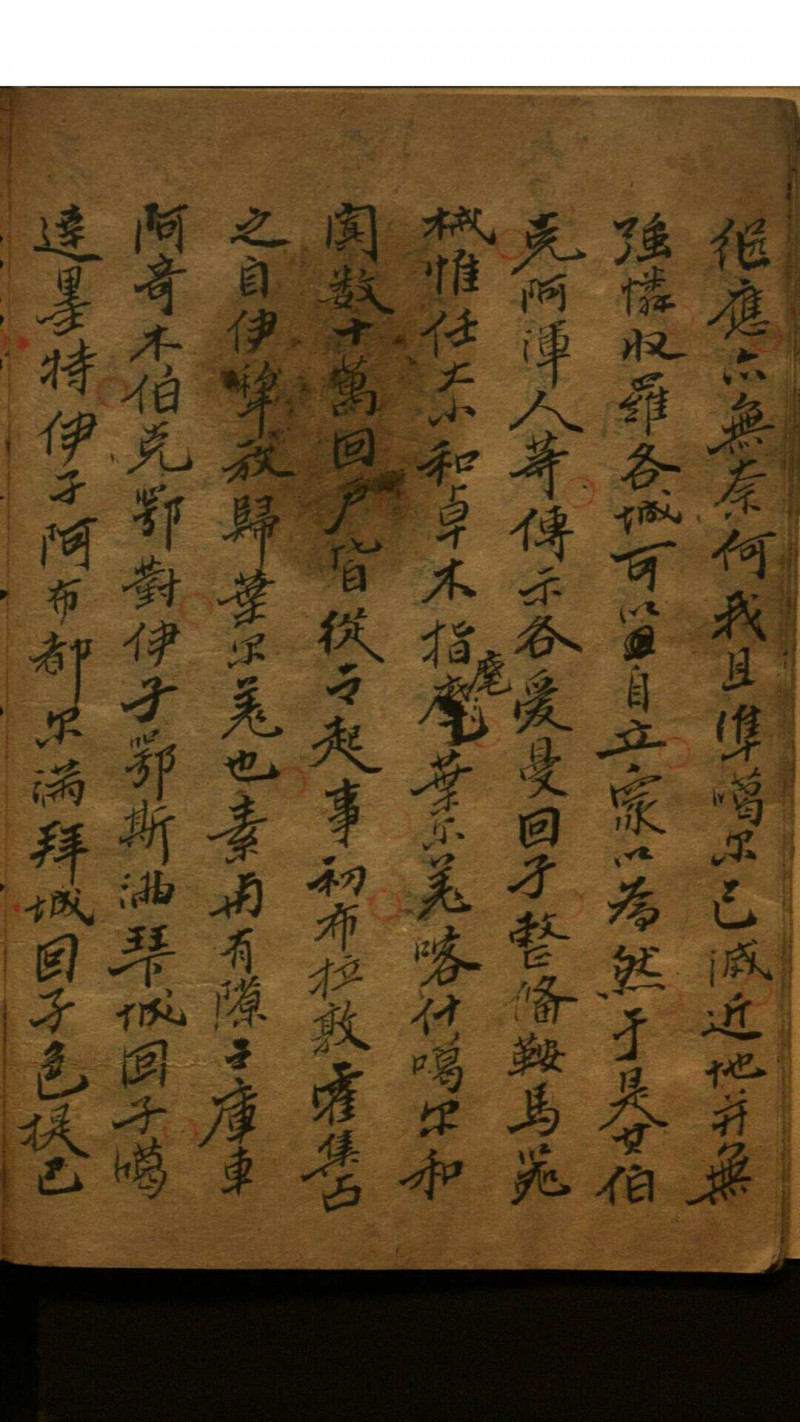 從應亦無奈何我且準噶尔已滅近地并無
強憐收羅各城可以自立衆以為然于是其伯
克阿渾人等傳示各爱曼回子整俻鞍馬噐
械惟任大小和卓木指麾葉尔羌喀什噶尔和
闐数十萬回户皆從之起事初布拉敦霍集占
之自伊犂放歸葉尔羌也素与有隙之庫車
阿竒木伯克鄂對伊子鄂斯滿拜城回子噶
達墨特伊子阿布都尔滿拜城回子色提巴